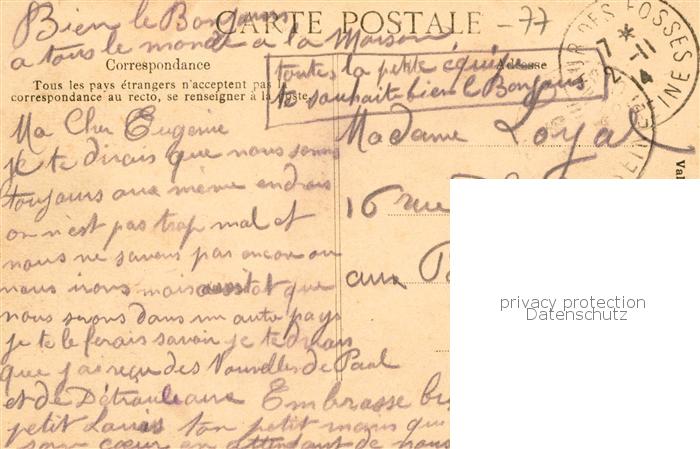 Bien le Bonjour
a tous le monde a la Maison
CARTE POSTALE
-77
Correspondance
Adresse
Tous les pays étrangers n'acceptent pas la
correspondance au recto, se renseigner à la Poste
toutes la petite équipe
te souhait bien le Bonjour
DES FOSSES
7 * 11
2 14
SEINE
Ma Cher Eugenie
je te dirais que nous somme
toujours aux même endrois
on n'est pas trop mal et
nous ne savons pas encore ou
nous irons mais aussitot que
nous serons dans un autre pays
je te le ferais savoir je te dirais
que j'ai reçu des Nouvelles de Paul
et de Embrasse
petit Louis ton petit maris qui
son cœur en attendant de nous
Madame Loyal
16 rue
aux
Val
privacy protection
Datenschutz